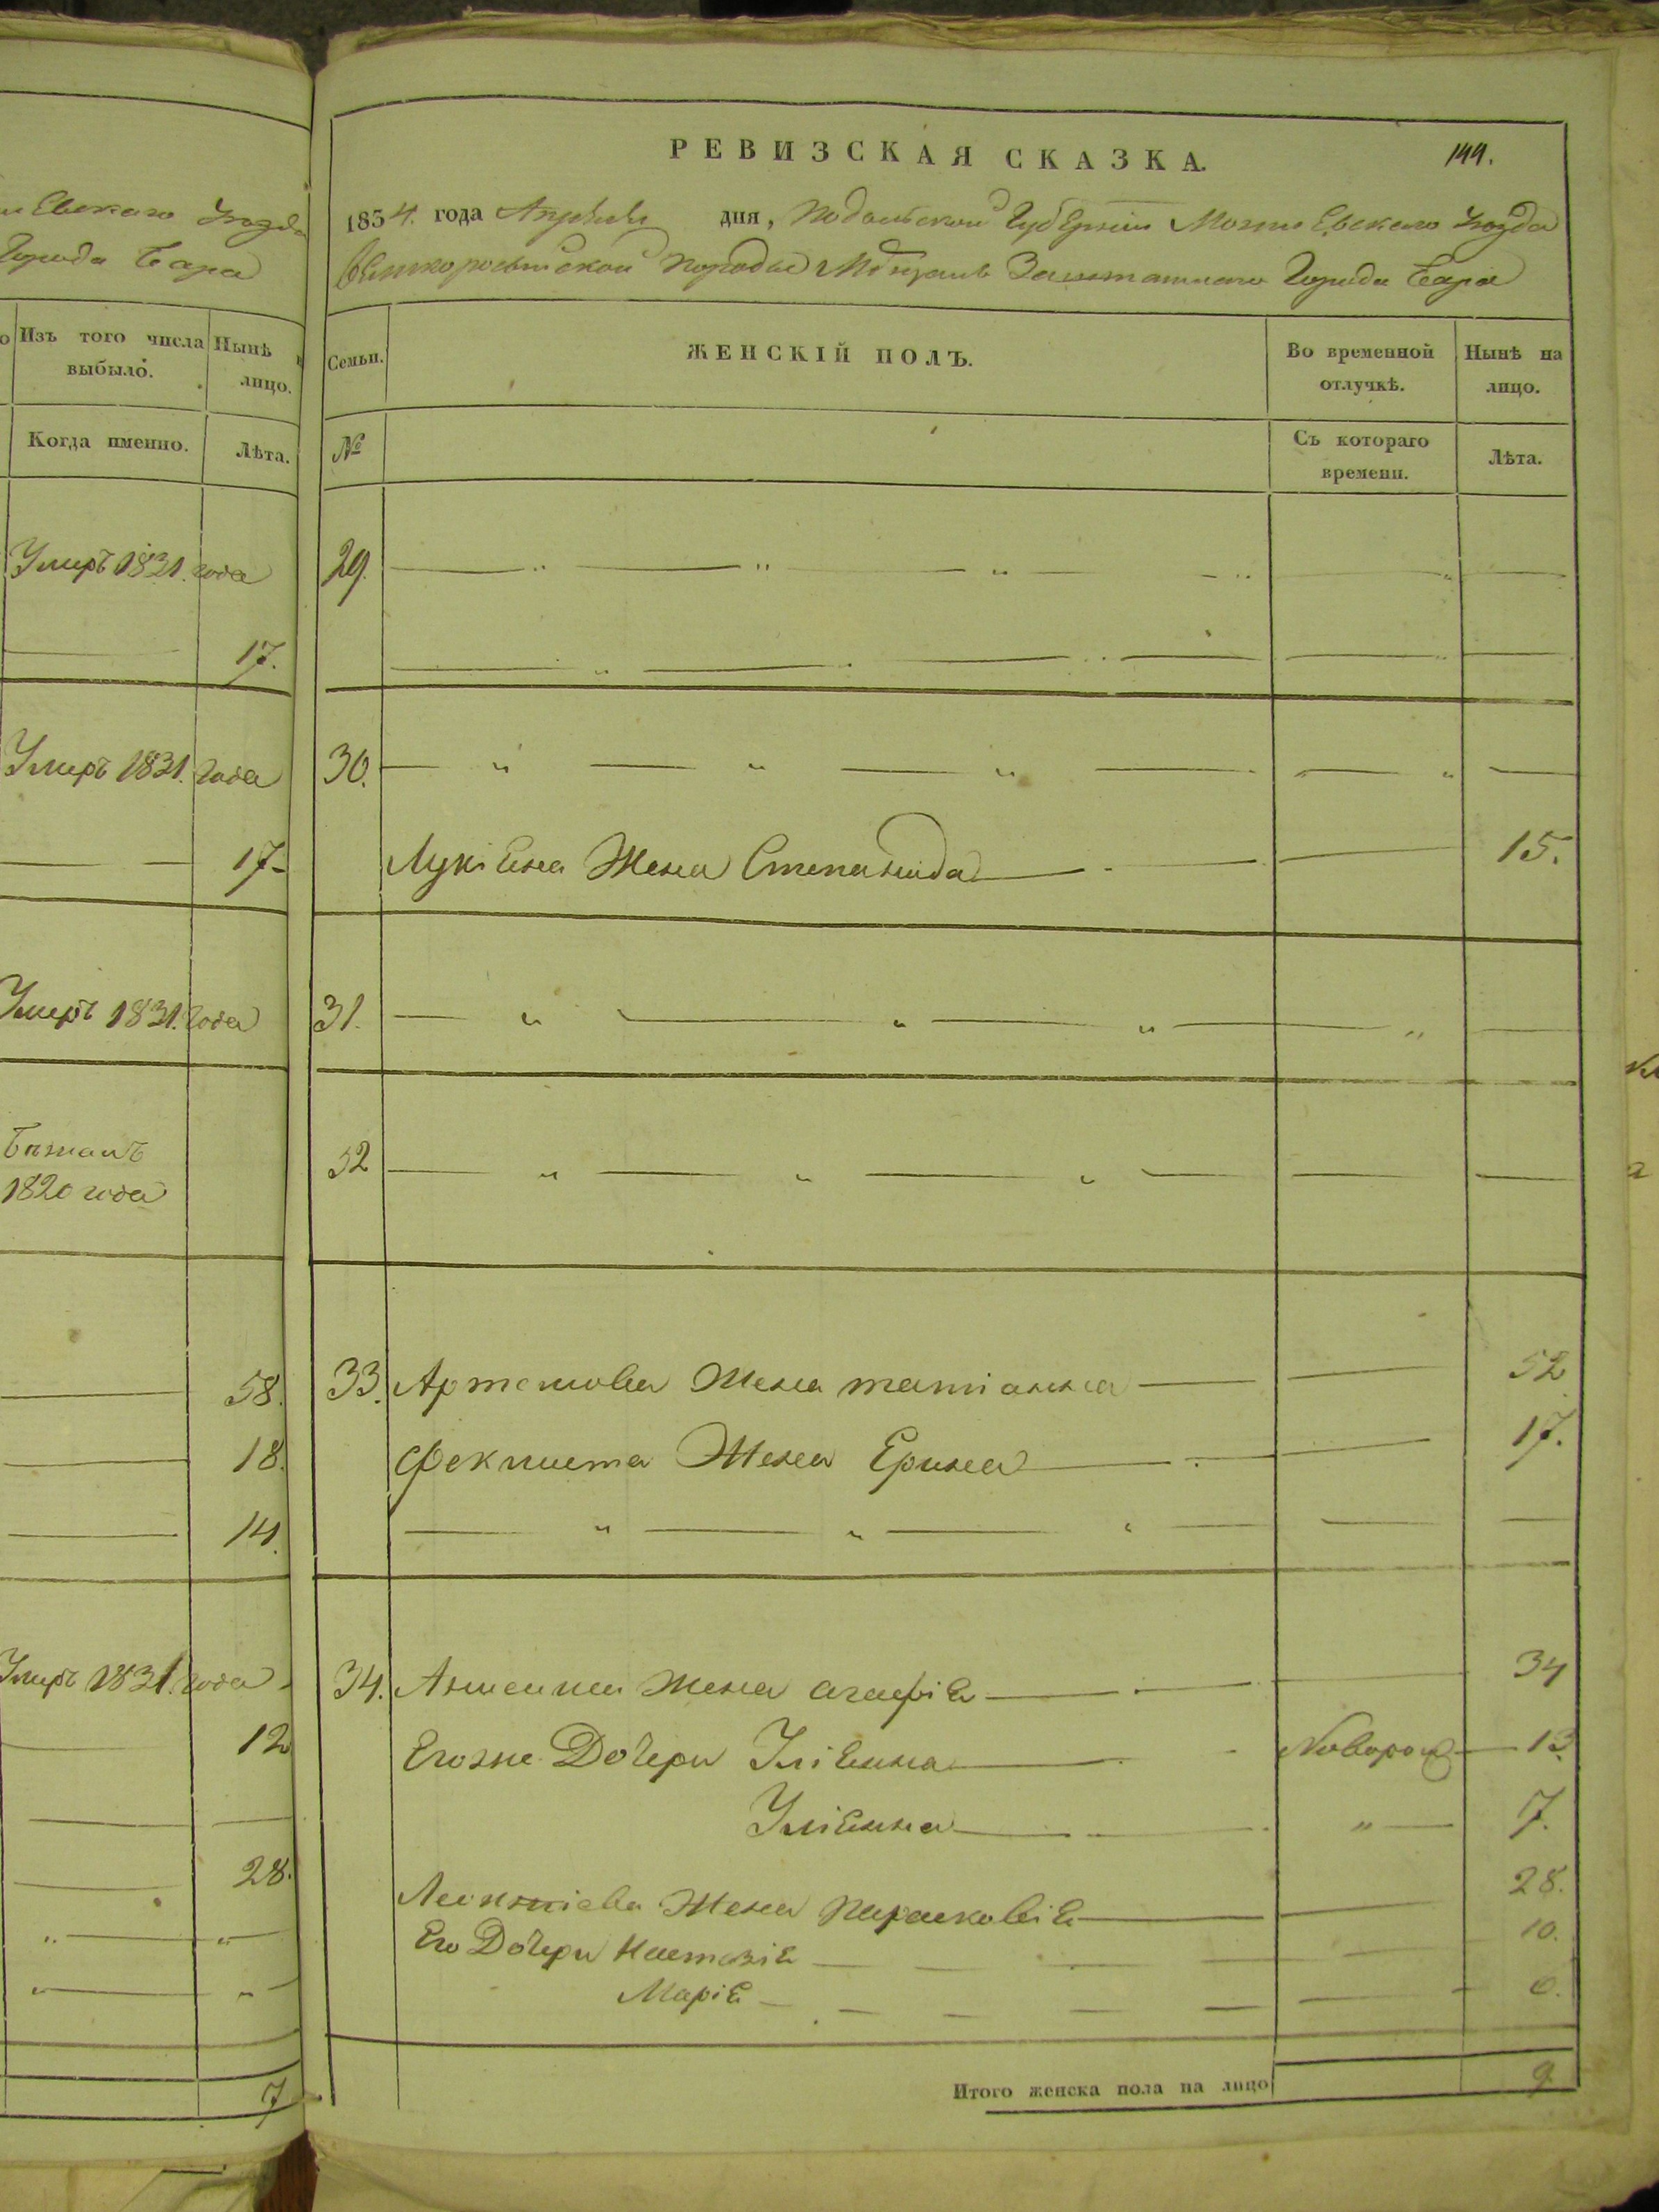 Евскаго Уѣзда
Города Бара
Изъ того числа выбыло.
Нынѣ лицо.
Когда именно.
Лѣта.
Умеръ 1831. года
17.
Умеръ 1831. года
17.
Умеръ 1831. года
1820 года
58.
18.
14.
Умеръ 1831. года
12
28.
7
РЕВИЗСКАЯ СКАЗКА.
144.
1834. года Апрѣля дня, Подольской Губерніи Могилевскаго Уѣзда
Города Бара
Семьи.
ЖЕНСКІЙ ПОЛЪ.
Во временной отлучкѣ.
Нынѣ на лицо.
№
Съ котораго времени.
Лѣта.
29.
30.
Жена Степанида 15.
31.
32
33. Артемова Жена татіанна 52
Фекниста Жена Ерина 17.
34. Жена агафіа 34
Егоже Дочери Уліенна 13.
Уліенна 7.
Леонтіева Жена Парасковіа 28.
Его Дочери Настазіа 10.
Маріа 6.
Итого женска пола на лицо 9